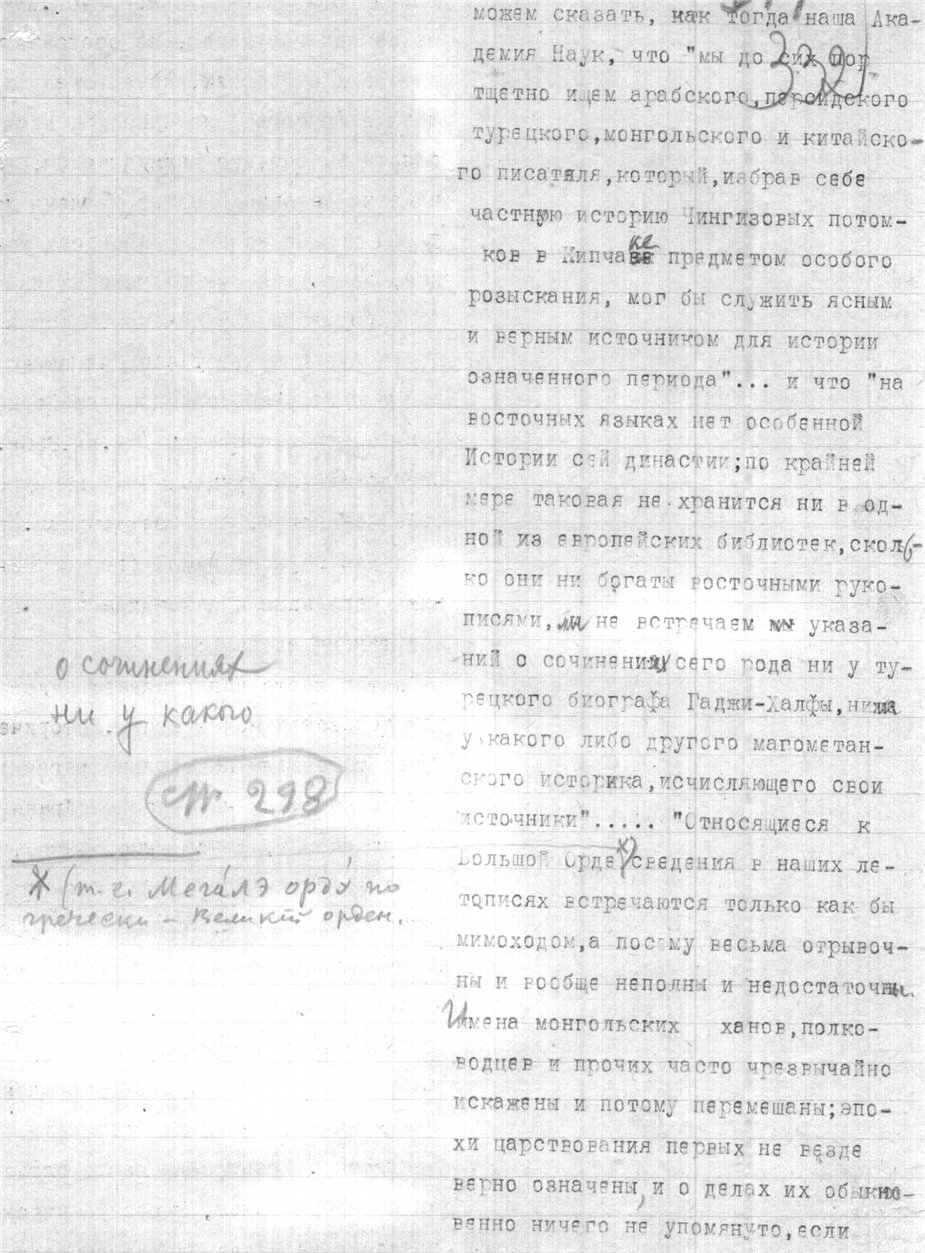 можем сказать, как тогда наша Ака-
демия Наук, что "мы до сих пор
тщетно ищем арабского,персидского
турецкого,монгольского и китайско-
го писателя,который,избрав себе
частную историю Чингизовых потом-
ков в Кипчаке предметом особого
розыскания, мог бы служить ясным
и верным источником для истории
означенного периода"... и что "на
восточных языках нет особенной
Истории сей династии;по крайней
мере таковая не хранится ни в од-
ной из европейских библиотек,сколь-
ко они ни богаты восточными руко-
писями, не встречаем указа-
ний о сочинениях сего рода ни у ту-
рецкого биографа Гаджи-Халфы,ни
у какого либо другого магометан-
ского историка,исчисляющего свои
источники"..... "Относящиеся к
Большой Орде х) сведения в наших ле-
тописях встречаются только как бы
мимоходом,а посему весьма отрывоч-
ны и вообще неполны и недостаточны.
Имена монгольских ханов,полко-
водцев и прочих часто чрезвычайно
искажены и потому перемешаны;эпо-
хи царствования первых не везде
верно означены, и о делах их обыкно-
венно ничего не упомянуто,если
321
о сочинениях
ни у какого
стр 298
х (т.е. Мега́лэ орда́ по
гречески – Великий орден.